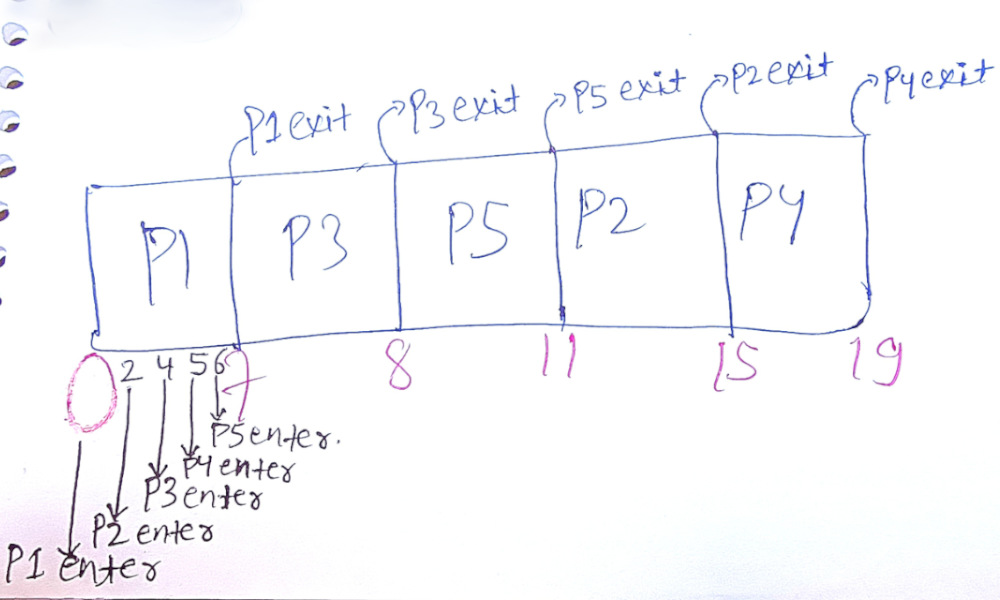 P1 exit P3 exit P5 exit P2 exit P4 exit
P1 P3 P5 P2 P4
0 2 4 5 6 7 8 11 15 19
P5 enter.
P4 enter
P3 enter
P2 enter
P1 enter